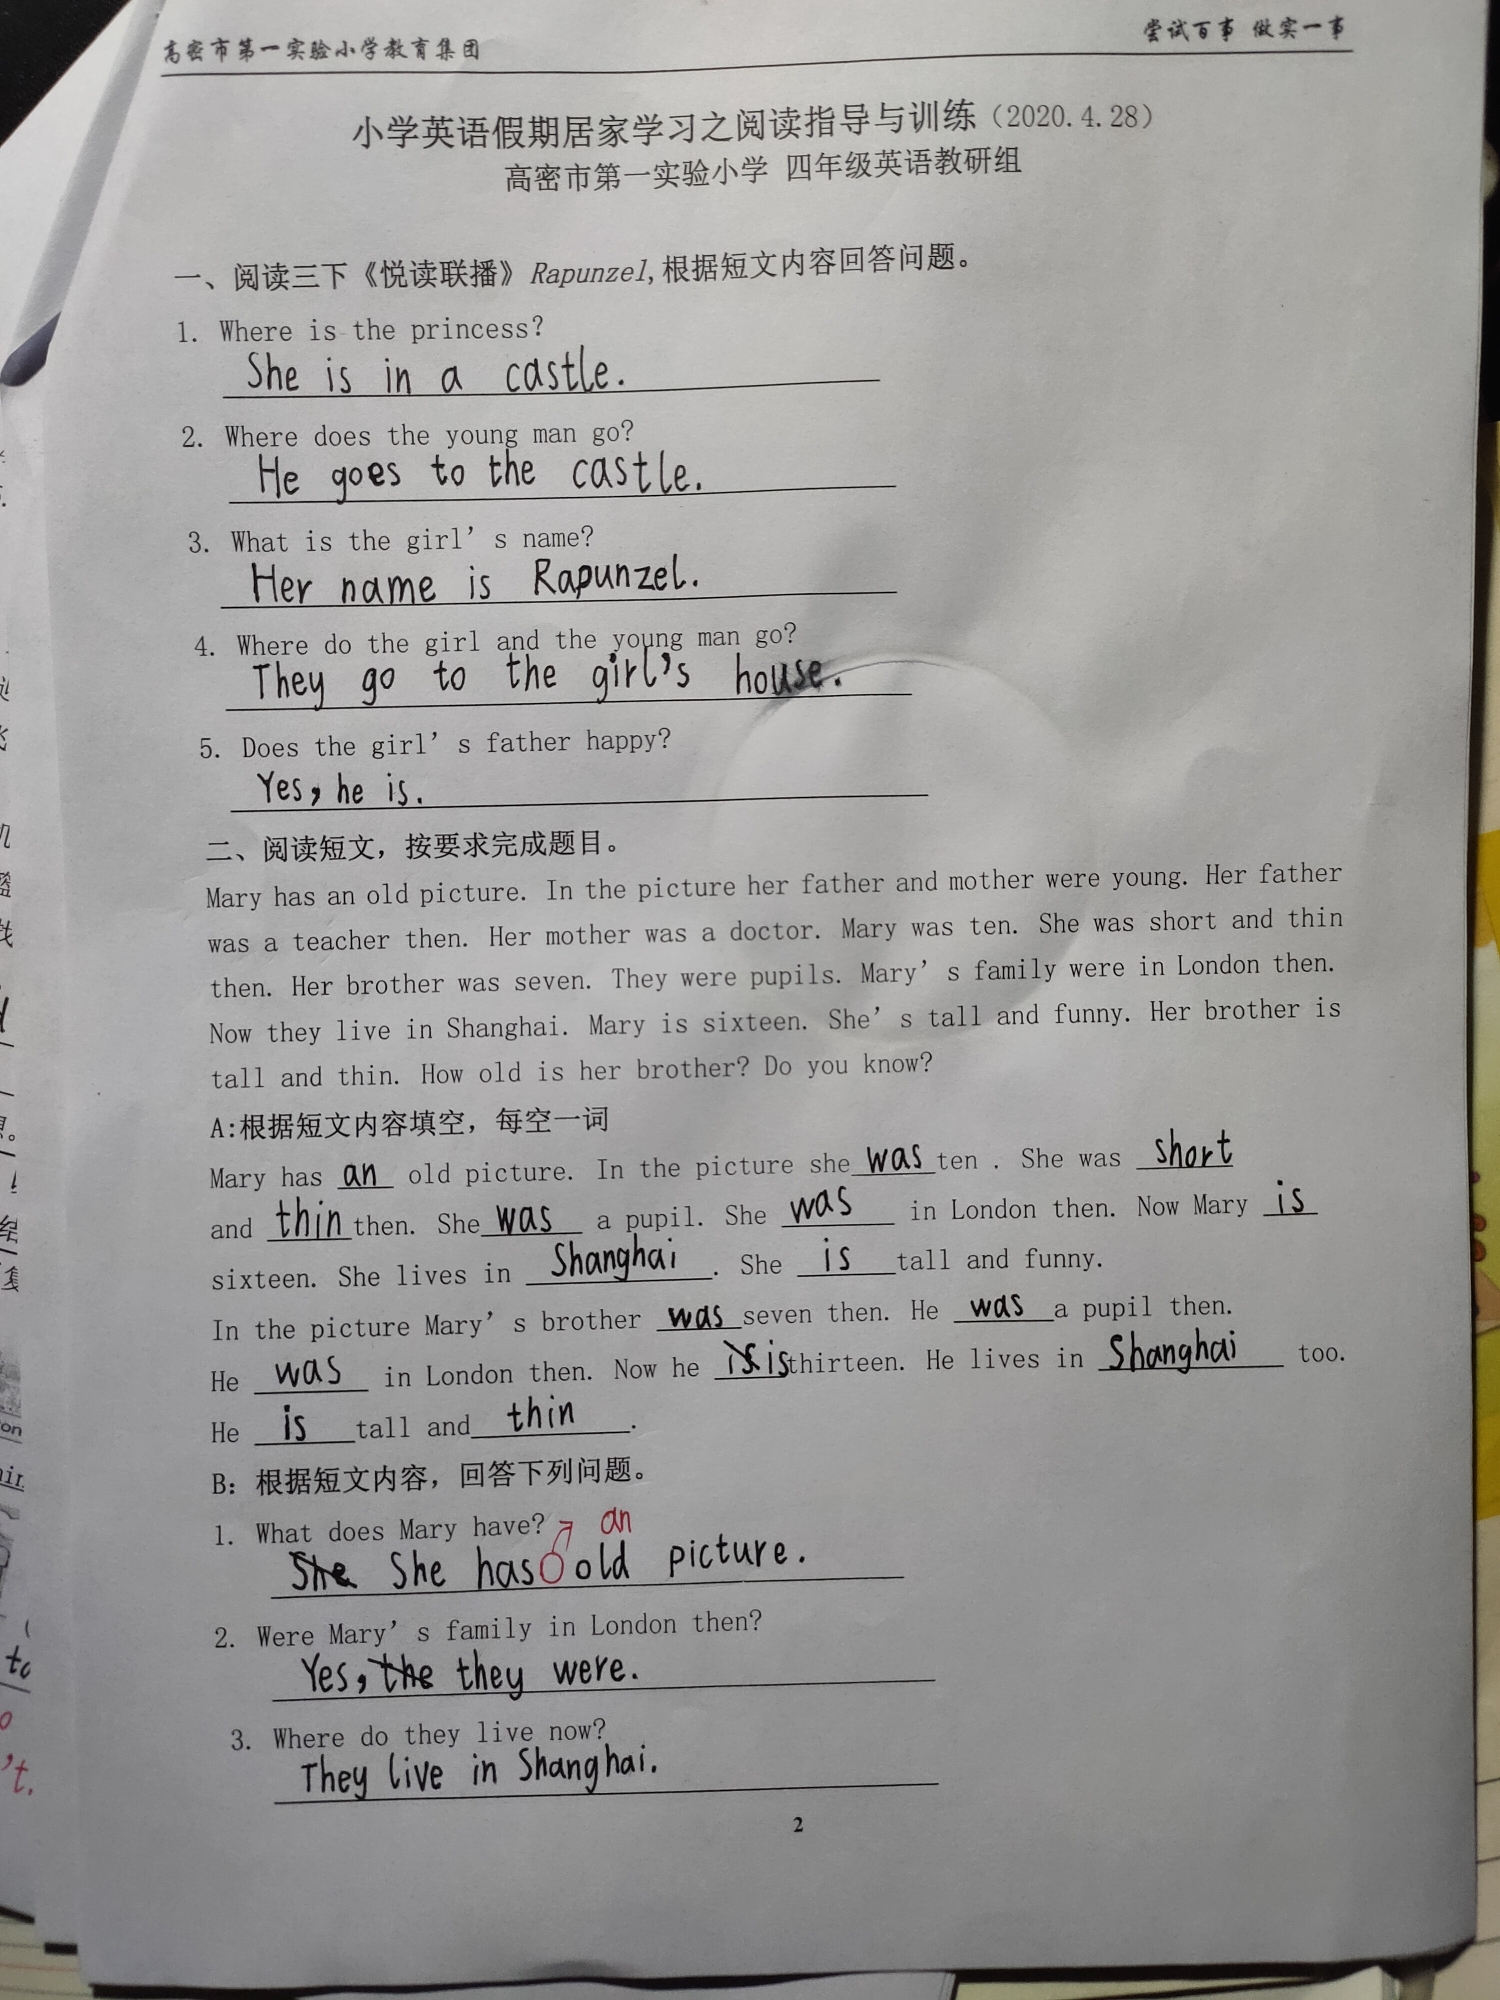 高密市第一实验小学教育集团 尝试百事 做实一事
小学英语假期居家学习之阅读指导与训练（2020.4.28）
高密市第一实验小学 四年级英语教研组
一、阅读三下《悦读联播》Rapunzel,根据短文内容回答问题。
1. Where is the princess?
She is in a castle.
2. Where does the young man go?
He goes to the castle.
3. What is the girl’s name?
Her name is Rapunzel.
4. Where do the girl and the young man go?
They go to the girl's house.
5. Does the girl’s father happy?
Yes, he is.
二、阅读短文，按要求完成题目。
Mary has an old picture. In the picture her father and mother were young. Her father
was a teacher then. Her mother was a doctor. Mary was ten. She was short and thin
then. Her brother was seven. They were pupils. Mary’s family were in London then.
Now they live in Shanghai. Mary is sixteen. She’s tall and funny. Her brother is
tall and thin. How old is her brother? Do you know?
A:根据短文内容填空，每空一词
Mary has an old picture. In the picture she was ten . She was short
and thin then. She was a pupil. She was in London then. Now Mary is
sixteen. She lives in Shanghai. She is tall and funny.
In the picture Mary’s brother was seven then. He was a pupil then.
He was in London then. Now he is is thirteen. He lives in Shanghai too.
He is tall and thin.
B: 根据短文内容，回答下列问题。
1. What does Mary have? an
She She has old picture.
2. Were Mary’s family in London then?
Yes, the they were.
3. Where do they live now?
They live in Shanghai.
2